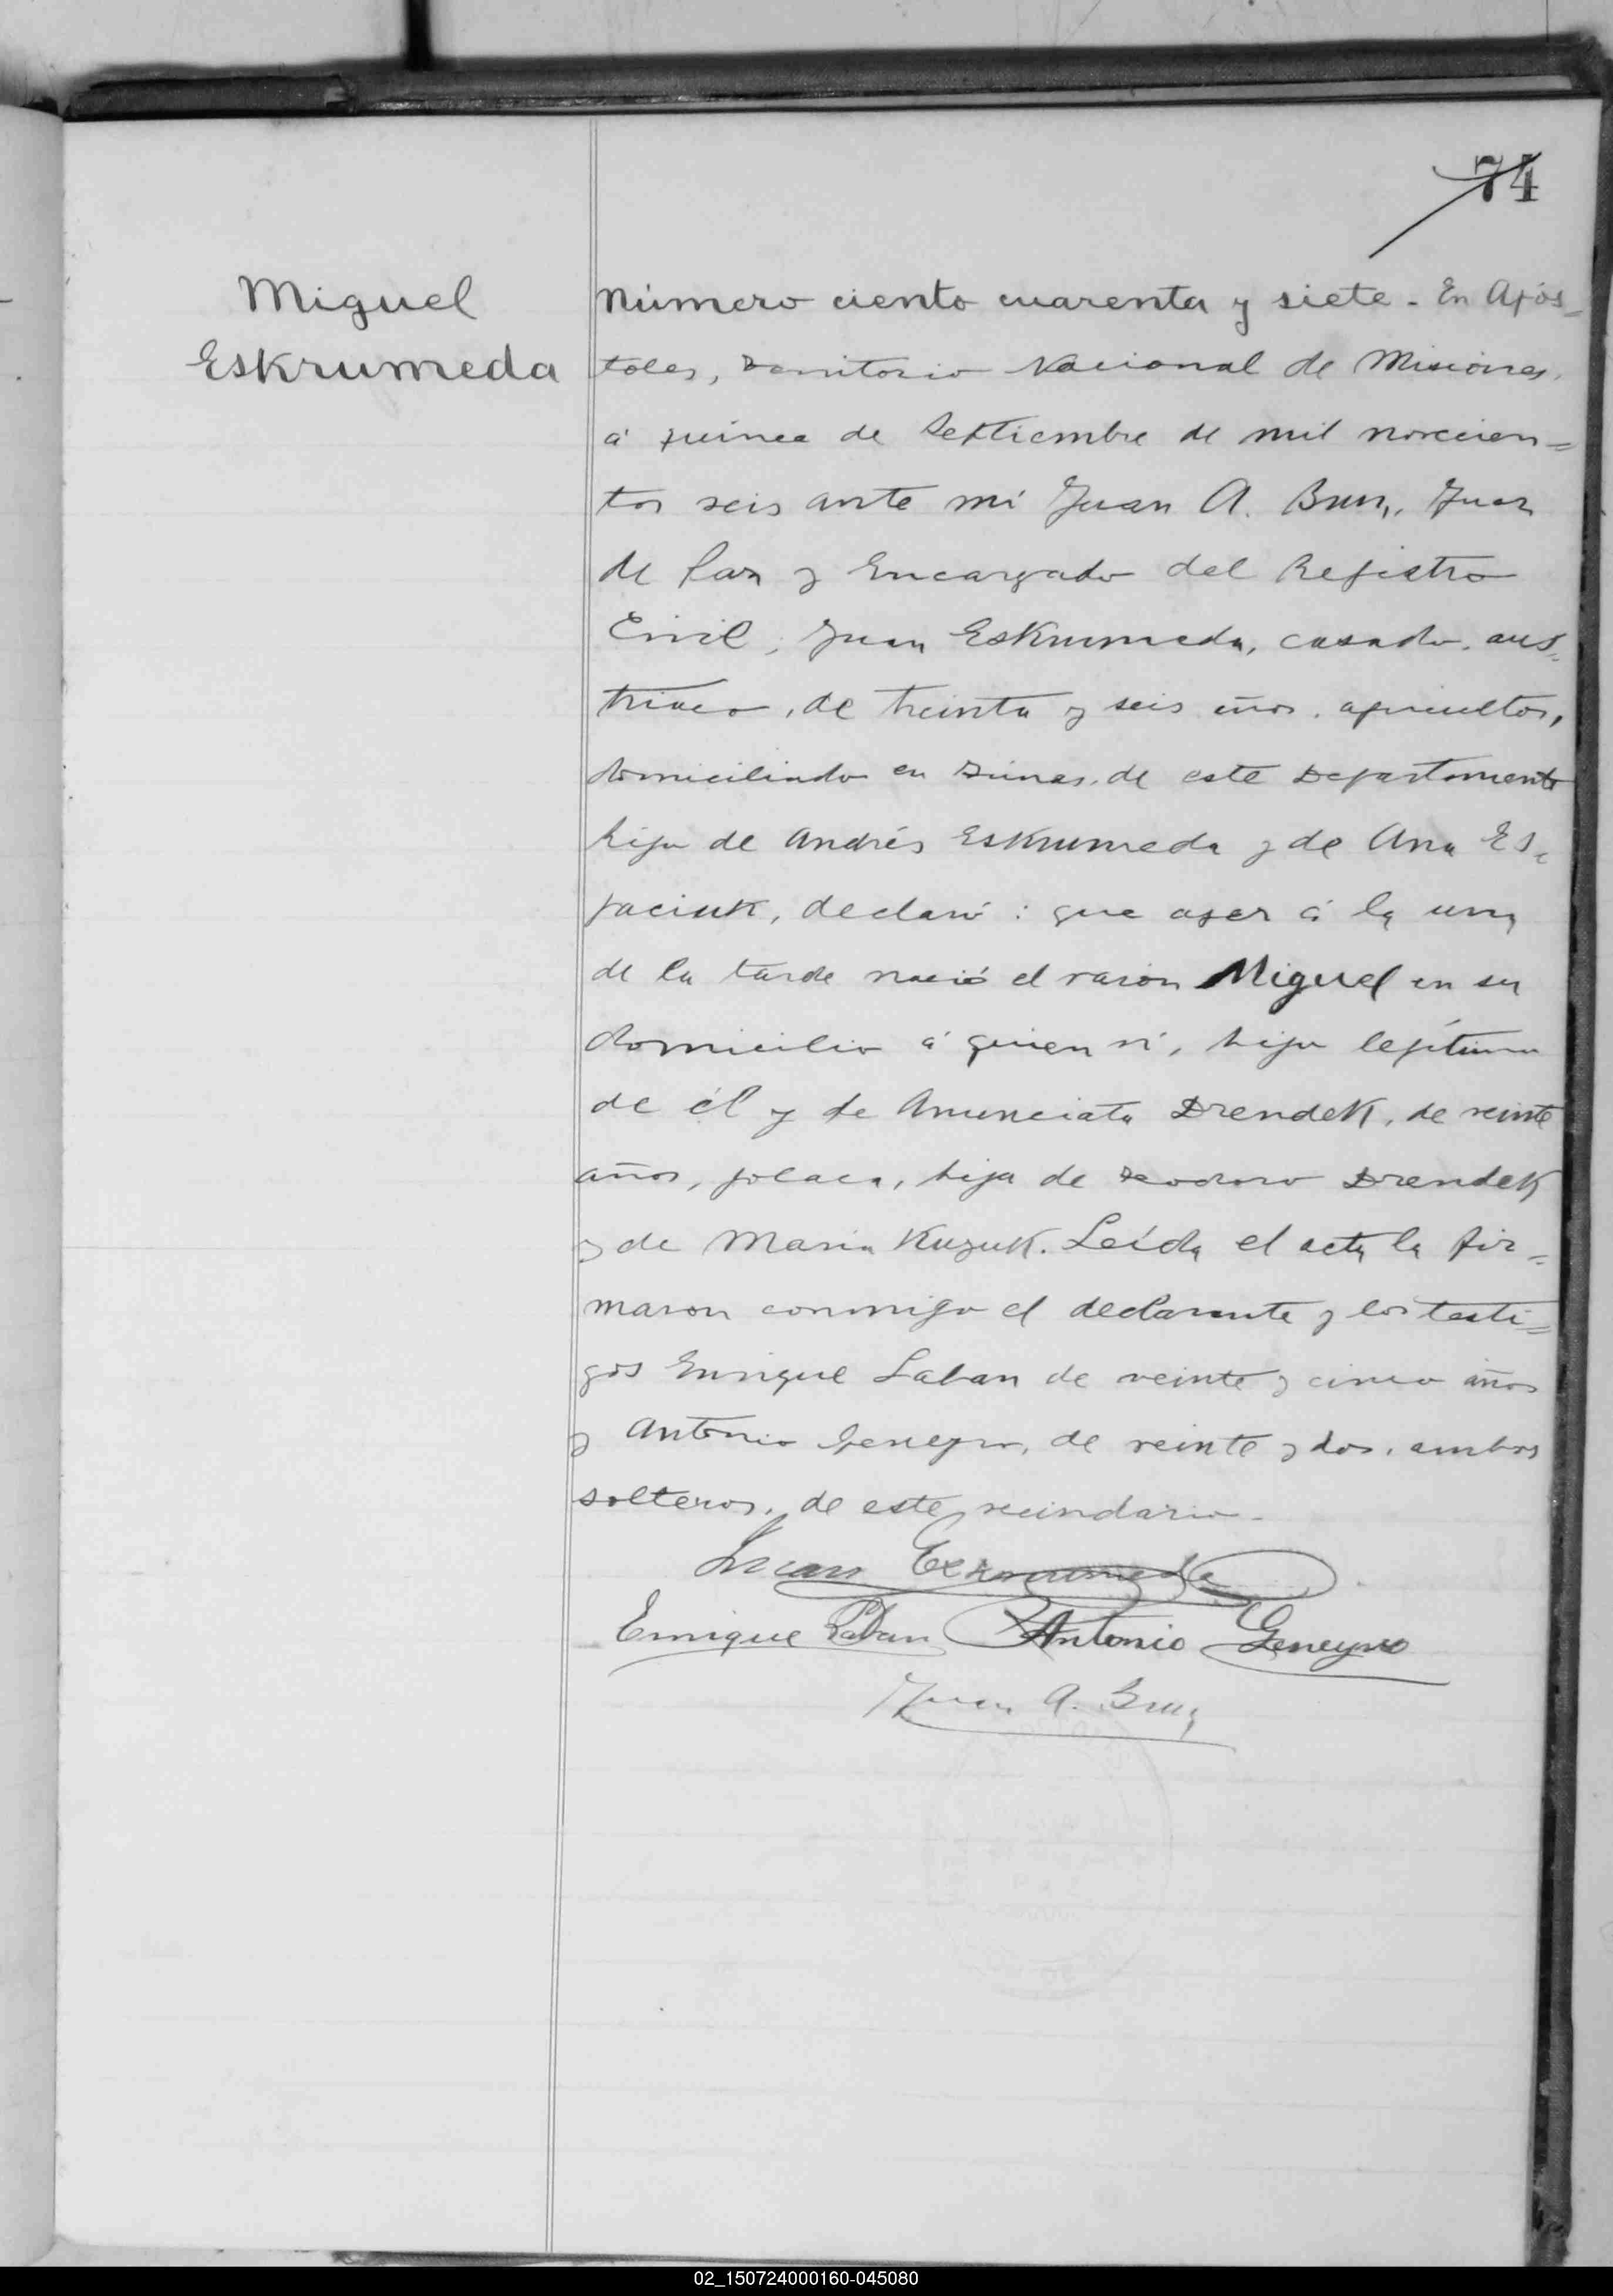 74
Miguel
Eskrumeda
Número ciento cuarenta y siete. En Após-
toles, Territorio Nacional de Misiones,
á quince de Septiembre de mil novecien=
tos seis ante mi Juan A. Bun, Juez
de Paz y Encargado del Registro
Civil, Juan Eskrumeda, casado, aus=
triaco, de treinta y seis años, agricultor,
domiciliado en de este Departamento
hijo de Andrés Eskrumeda y de Ana Es=
paciuk, declaró: que ayer á la una
de la tarde nació el varón Miguel en su
domicilio á quien ví, hijo legítimo
de él y de Anunciata Drendek, de veinte
años, polaca, hija de Teodoro Drendek
y de Maria Kuzuk. Leída el acta la fir=
maron conmigo el declarante y los testi=
gos Enrique Laban de veinte y cinco años
y Antonio Geneyro, de veinte y dos, ambos
solteros, de este vecindario.
Juan
Enrique Laban Antonio Geneyro
Juan A.
02_150724000160-045080